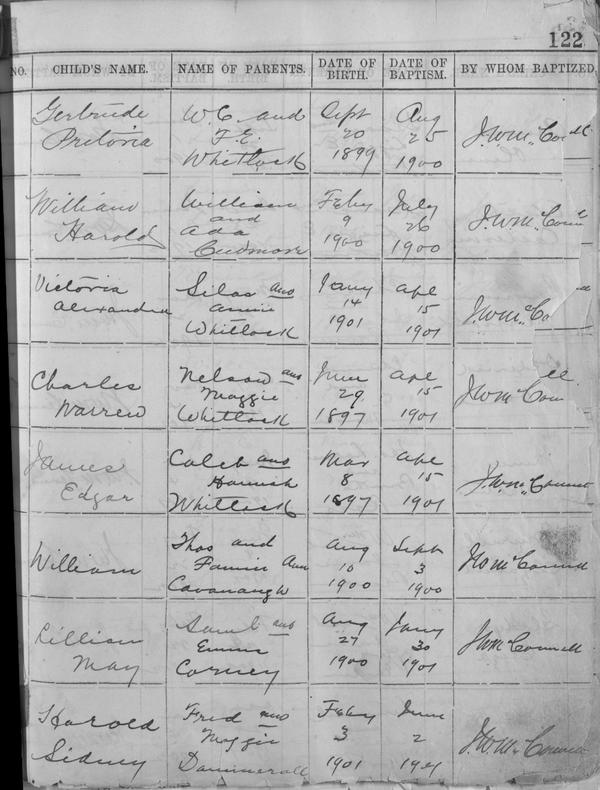 122
NO. CHILD'S NAME. NAME OF PARENTS. DATE OF BIRTH. DATE OF BAPTISM. BY WHOM BAPTIZED
Gertrude W. C. and Sept Aug
Pretoria F. E. 20 25 J. W. McConell
Whitlock 1899 1900
William William Feby July
Harold and 9 26 J. W. McConnell
Ada 1900 1900
Cudmore
Victoria Silas and Jany Apl
Alexandra Annie 14 15 J. W. McCo
Whitlock 1901 1901
Charles Nelson and June Apl
Warren Maggie 29 15 J W McConnell
Whitlock 1897 1901
James Caleb and Mar Apl
Edgar Hannah 8 15 J. W. McConnell
Whitlock 1897 1901
Thos and Aug Sept
William Fannie Ann 10 3 J W McConnell
Cavanaugh 1900 1900
Lillian Saml and Aug Jany
May Emma 27 30 J W McConnell
Corney 1900 1901
Harold Fred and Feby June
Sidney Maggie 3 2 J. W. McConnell
1901 1901